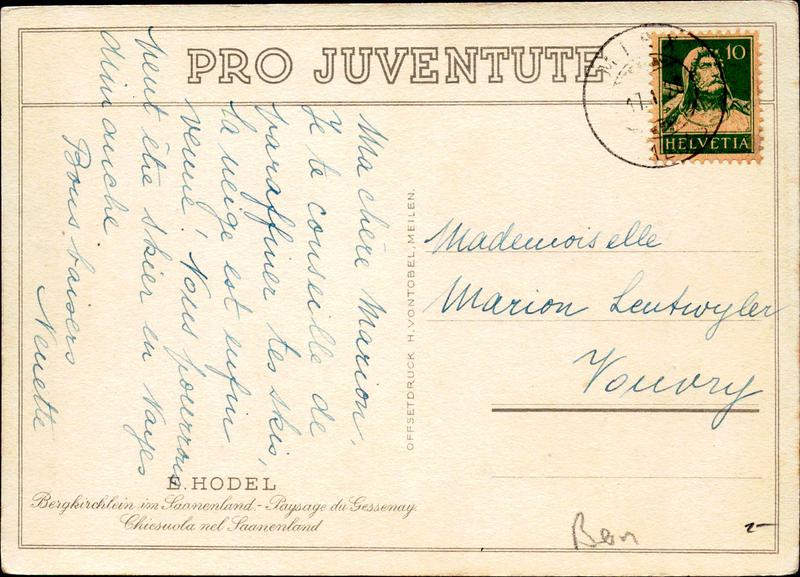 PRO JUVENTUTE
10
HELVETIA
17.1
12
Ma chère Marion,
Je te conseille de
paraffiner tes skis,
la neige est enfin
venue! Nous pourrons
peut être skier en Nayes
dimanche
Bons baisers
Nenette
OFFSETDRUCK H.VONTOBEL, MEILEN.
Mademoiselle
Marion Leutwyler
Vouvry
E. HODEL
Bergkirchlein im Saanenland.- Paysage du Gessenay.
Chiesuola nel Saanenland